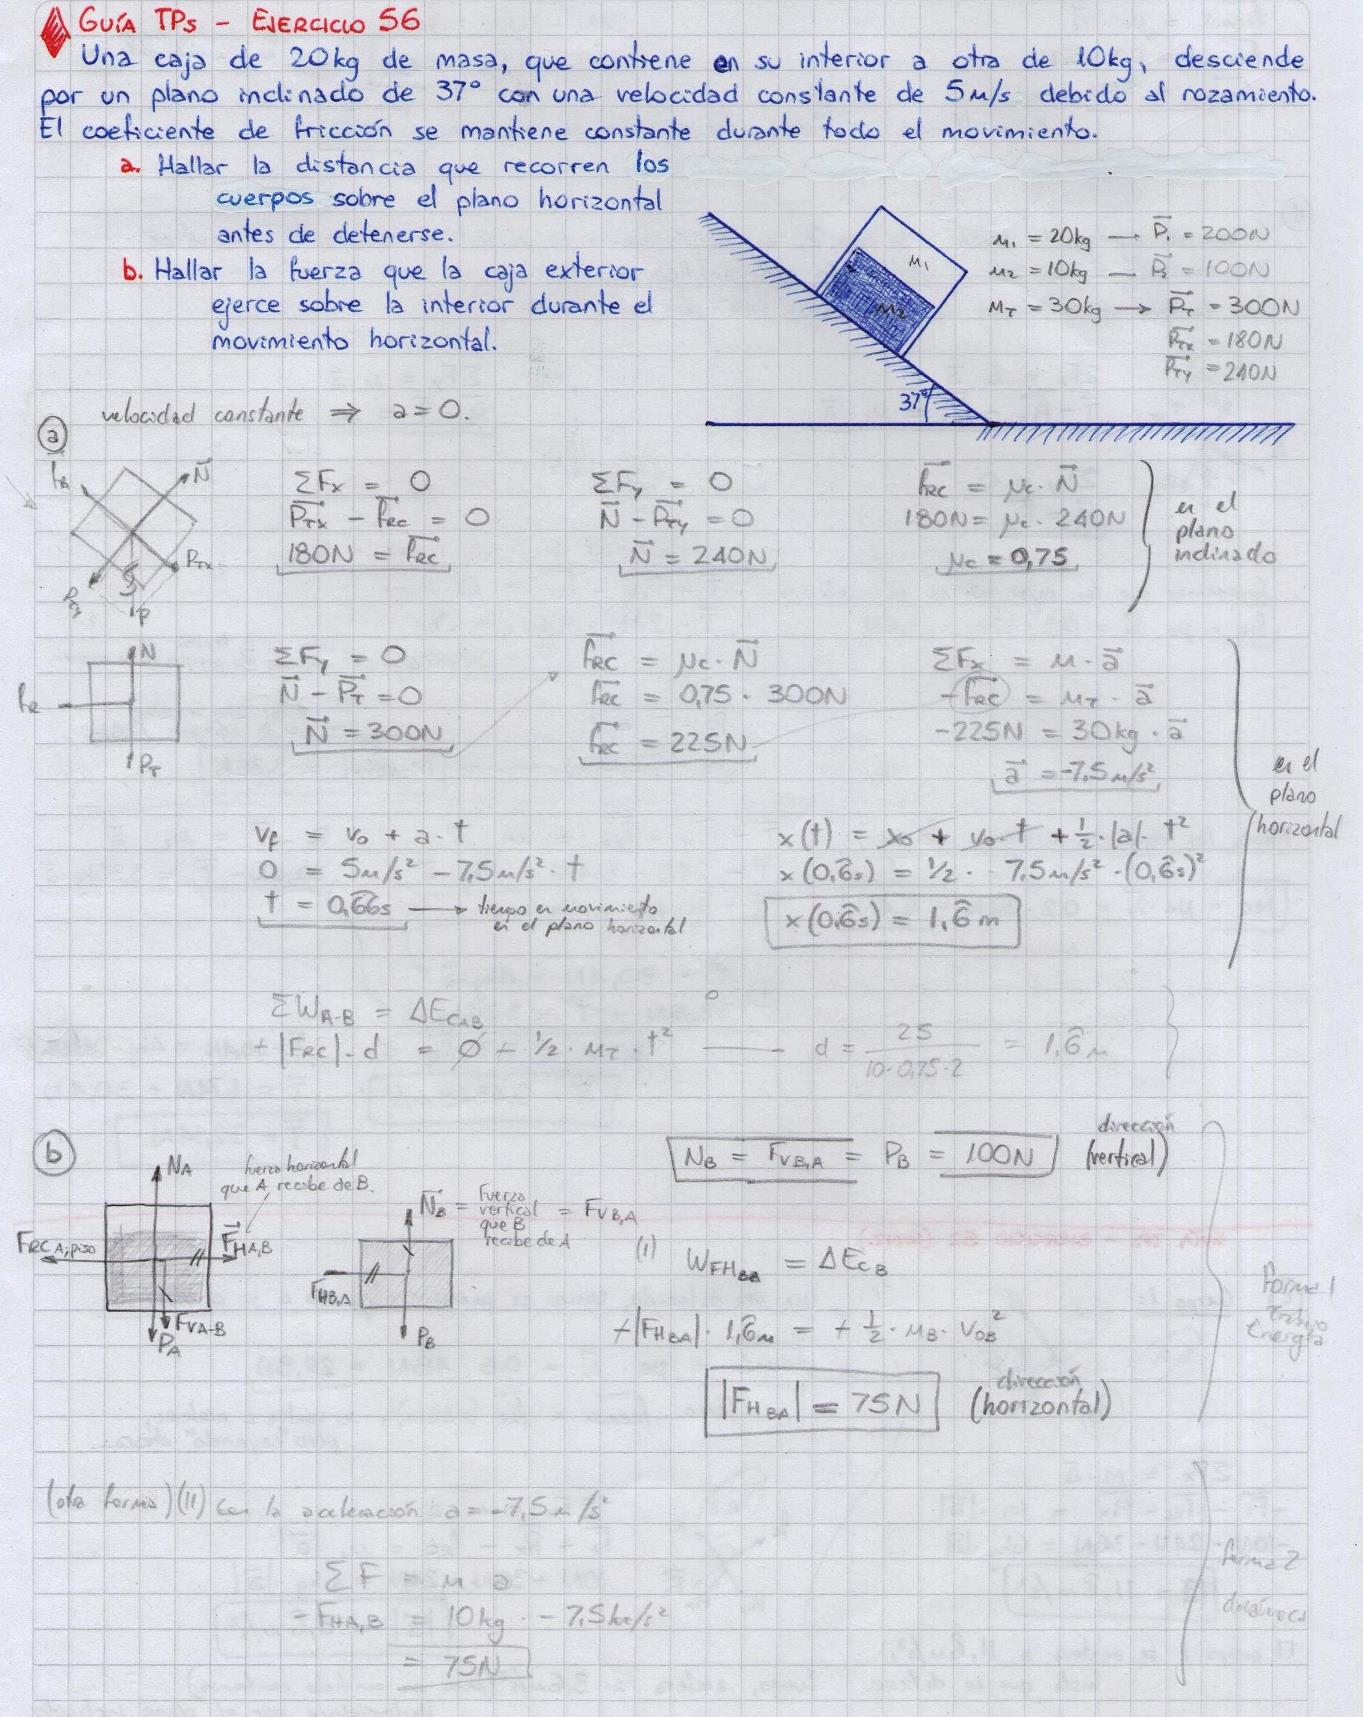 GUÍA TPs - EJERCICIO 56
Una caja de 20kg de masa, que contiene en su interior a otra de 10kg, desciende
por un plano inclinado de 37° con una velocidad constante de 5m/s debido al rozamiento.
El coeficiente de fricción se mantiene constante durante todo el movimiento.
a. Hallar la distancia que recorren los
cuerpos sobre el plano horizontal
antes de detenerse.
b. Hallar la fuerza que la caja exterior
ejerce sobre la interior durante el
movimiento horizontal.
M₁
M₂
37°
m₁ = 20kg — P₁ = 200N
m₂ = 10kg — P₂ = 100N
MT = 30kg → PT = 300N
PTX = 180N
PTY = 240N
a
velocidad constante ⇒ a = 0.
N
PTX
PTY
P
ΣFx = 0
PTX - FRC = 0
180N = FRC
ΣFy = 0
N - PTY = 0
N = 240N
FRC = μc · N
180N = μc · 240N
μc = 0,75
en el
plano
inclinado
N
FR
PT
ΣFy = 0
N - PT = 0
N = 300N
FRC = μc · N
FRC = 0,75 · 300N
FRC = 225N
ΣFx = m · a
-FRC = mT · a
-225N = 30kg · a
a = -7,5 m/s²
en el
plano
horizontal
Vf = V₀ + a · t
0 = 5m/s² - 7,5m/s² · t
t = 0,66s → tiempo en movimiento
en el plano horizontal
x(t) = x₀ + v₀ t + ½ · |a| · t²
x(0,6s) = ½ · -7,5m/s² · (0,6s)²
x(0,6s) = 1,6 m
ΣWA-B = ΔECAB
+|FRC| · d = Ø + ½ · MT · t² — d = 25 / 10·0,75·2 = 1,6 m
b
NA
fuerza horizontal
que A recibe de B.
FRC A;piso
FHA,B
FVA-B
PA
NB = Fuerza vertical que B recibe de A = FVB,A
FHB,A
PB
NB = FVB,A = PB = 100N dirección (vertical)
(I) WFHBA = ΔECB
+|FHBA| · 1,6m = + ½ · MB · V0B²
|FHBA| = 75N dirección (horizontal)
forma 1
trabajo
energía
(otra forma) (II) con la aceleración a = -7,5 m/s²
ΣF = m a
-FHA,B = 10kg · -7,5m/s²
= 75N
forma 2
dinámica